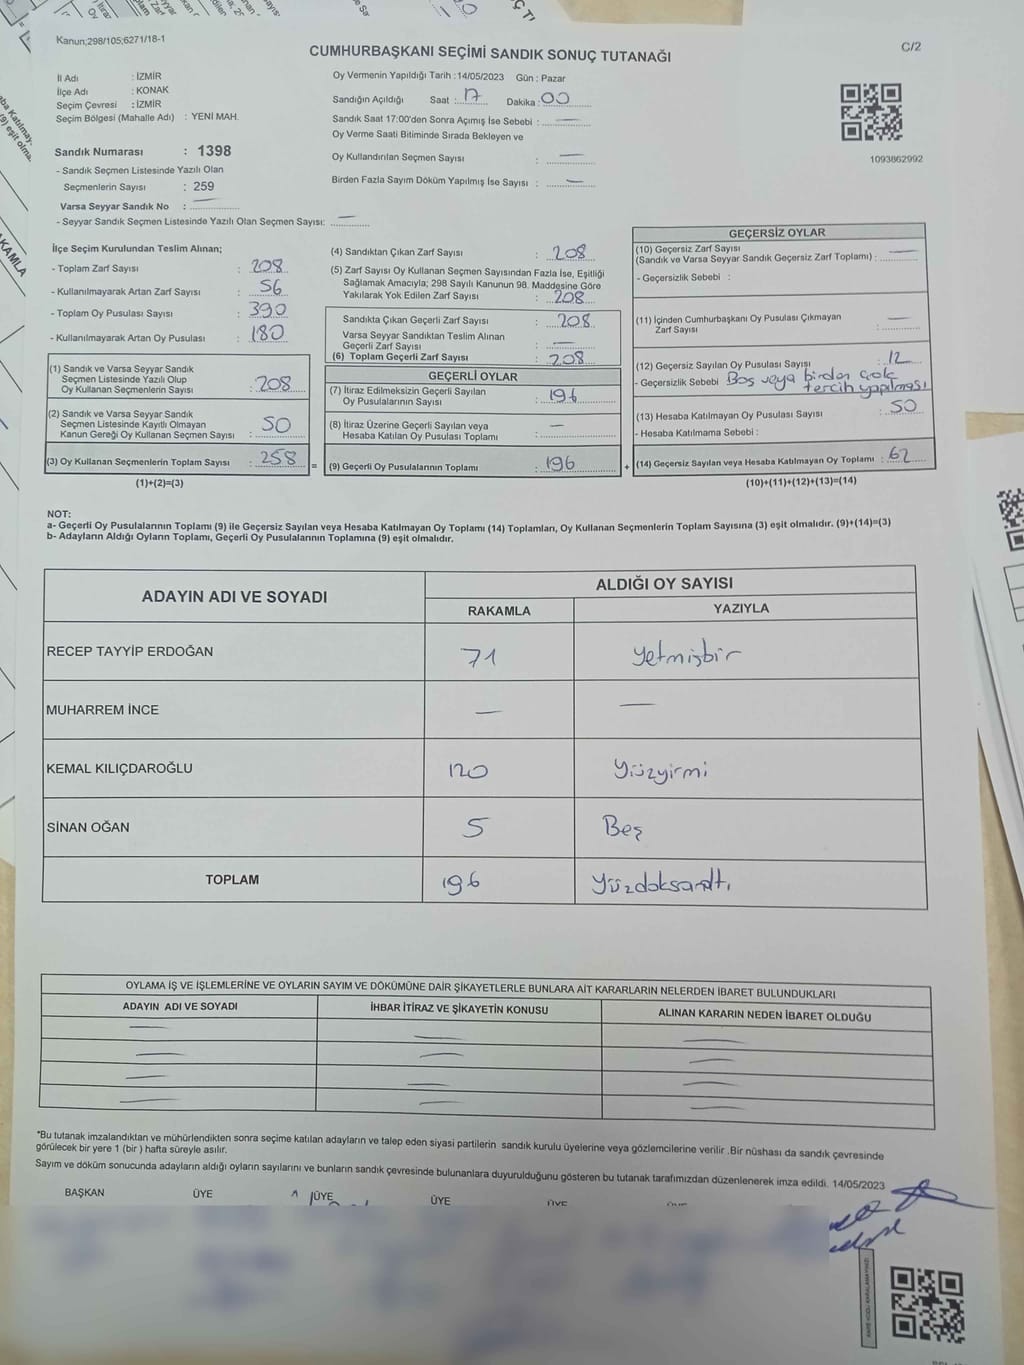 Kanun;298/105;6271/18-1
CUMHURBAŞKANI SEÇİMİ SANDIK SONUÇ TUTANAĞI
C/2
İl Adı : İZMİR
İlçe Adı : KONAK
Seçim Çevresi : İZMİR
Seçim Bölgesi (Mahalle Adı) : YENİ MAH.
Sandık Numarası : 1398
- Sandık Seçmen Listesinde Yazılı Olan
Seçmenlerin Sayısı : 259
Varsa Seyyar Sandık No : —
- Seyyar Sandık Seçmen Listesinde Yazılı Olan Seçmen Sayısı: —
Oy Vermenin Yapıldığı Tarih :14/05/2023 Gün : Pazar
Sandığın Açıldığı Saat : 17 Dakika : 00
Sandık Saat 17:00'den Sonra Açımış İse Sebebi : —
Oy Verme Saati Bitiminde Sırada Bekleyen ve
Oy Kullandırılan Seçmen Sayısı : —
Birden Fazla Sayım Döküm Yapılmış İse Sayısı : —
1093862992
İlçe Seçim Kurulundan Teslim Alınan;
- Toplam Zarf Sayısı : 208
- Kullanılmayarak Artan Zarf Sayısı : 56
- Toplam Oy Pusulası Sayısı : 390
- Kullanılmayarak Artan Oy Pusulası : 180
(1) Sandık ve Varsa Seyyar Sandık
Seçmen Listesinde Yazılı Olup
Oy Kullanan Seçmenlerin Sayısı : 208
(2) Sandık ve Varsa Seyyar Sandık
Seçmen Listesinde Kayıtlı Olmayan
Kanun Gereği Oy Kullanan Seçmen Sayısı : 50
(3) Oy Kullanan Seçmenlerin Toplam Sayısı : 258
(1)+(2)=(3)
(4) Sandıktan Çıkan Zarf Sayısı : 208
(5) Zarf Sayısı Oy Kullanan Seçmen Sayısından Fazla İse, Eşitliği
Sağlamak Amacıyla; 298 Sayılı Kanunun 98. Maddesine Göre
Yakılarak Yok Edilen Zarf Sayısı : 208
Sandıkta Çıkan Geçerli Zarf Sayısı : 208
Varsa Seyyar Sandıktan Teslim Alınan
Geçerli Zarf Sayısı : —
(6) Toplam Geçerli Zarf Sayısı : 208
GEÇERLİ OYLAR
(7) İtiraz Edilmeksizin Geçerli Sayılan
Oy Pusulalarının Sayısı : 196
(8) İtiraz Üzerine Geçerli Sayılan veya
Hesaba Katılan Oy Pusulası Toplamı : —
= (9) Geçerli Oy Pusulalarının Toplamı : 196 +
GEÇERSİZ OYLAR
(10) Geçersiz Zarf Sayısı
(Sandık ve Varsa Seyyar Sandık Geçersiz Zarf Toplamı) : —
- Geçersizlik Sebebi :
(11) İçinden Cumhurbaşkanı Oy Pusulası Çıkmayan
Zarf Sayısı : —
(12) Geçersiz Sayılan Oy Pusulası Sayısı : 12
- Geçersizlik Sebebi Boş veya birden çok
tercih yapılması
(13) Hesaba Katılmayan Oy Pusulası Sayısı : 50
- Hesaba Katılmama Sebebi :
(14) Geçersiz Sayılan veya Hesaba Katılmayan Oy Toplamı : 62
(10)+(11)+(12)+(13)=(14)
NOT:
a- Geçerli Oy Pusulalarının Toplamı (9) ile Geçersiz Sayılan veya Hesaba Katılmayan Oy Toplamı (14) Toplamları, Oy Kullanan Seçmenlerin Toplam Sayısına (3) eşit olmalıdır. (9)+(14)=(3)
b- Adayların Aldığı Oyların Toplamı, Geçerli Oy Pusulalarının Toplamına (9) eşit olmalıdır.
ADAYIN ADI VE SOYADI
ALDIĞI OY SAYISI
RAKAMLA YAZIYLA
RECEP TAYYİP ERDOĞAN 71 Yetmişbir
MUHARREM İNCE — —
KEMAL KILIÇDAROĞLU 120 Yüzyirmi
SİNAN OĞAN 5 Beş
TOPLAM 196 Yüzdoksanaltı
OYLAMA İŞ VE İŞLEMLERİNE VE OYLARIN SAYIM VE DÖKÜMÜNE DAİR ŞİKAYETLERLE BUNLARA AİT KARARLARIN NELERDEN İBARET BULUNDUKLARI
ADAYIN ADI VE SOYADI İHBAR İTİRAZ VE ŞİKAYETİN KONUSU ALINAN KARARIN NEDEN İBARET OLDUĞU
— — —
— — —
— — —
— — —
*Bu tutanak imzalandıktan ve mühürlendikten sonra seçime katılan adayların ve talep eden siyasi partilerin sandık kurulu üyelerine veya gözlemcilerine verilir .Bir nüshası da sandık çevresinde
görülecek bir yere 1 (bir ) hafta süreyle asılır.
Sayım ve döküm sonucunda adayların aldığı oyların sayılarını ve bunların sandık çevresinde bulunanlara duyurulduğunu gösteren bu tutanak tarafımızdan düzenlenerek imza edildi. 14/05/2023
BAŞKAN ÜYE ÜYE ÜYE ÜYE